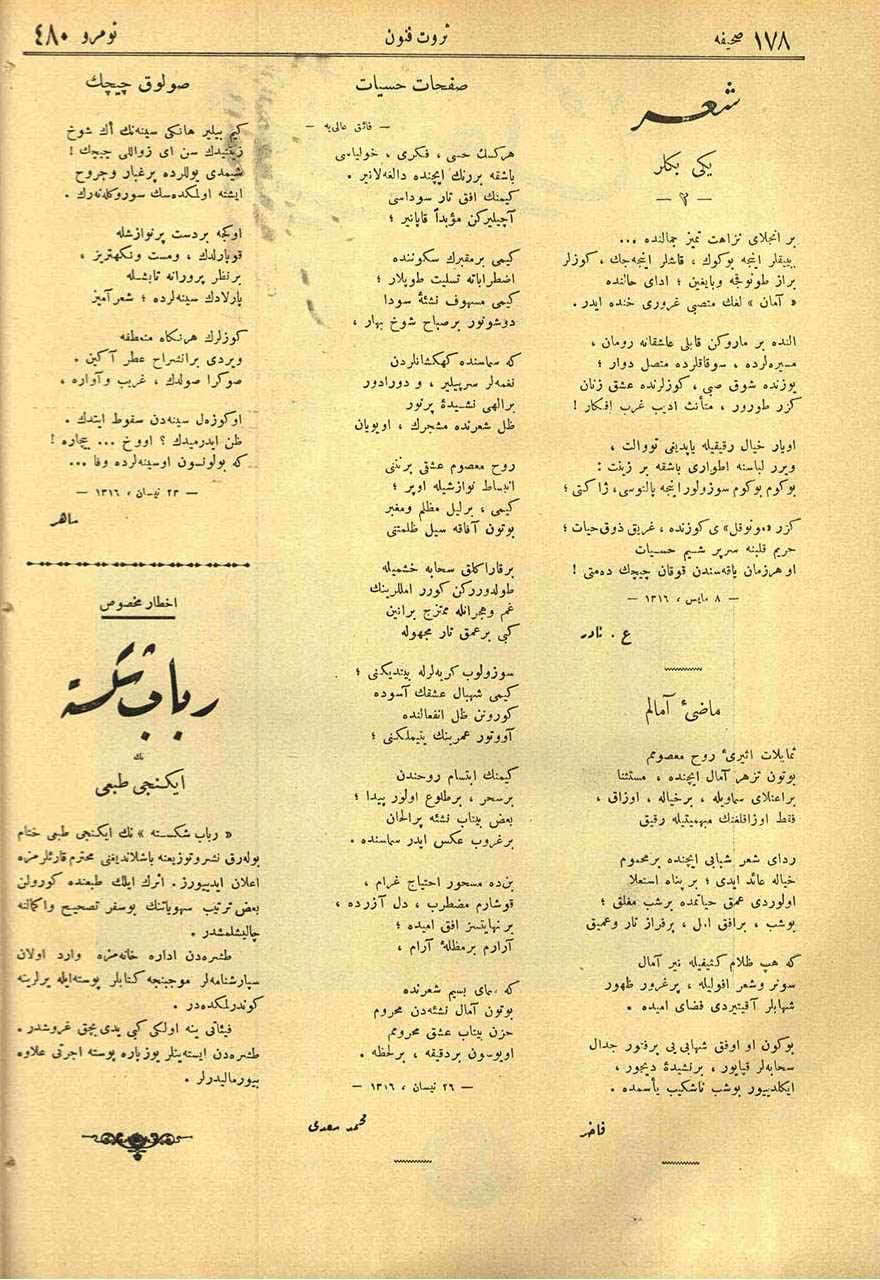 صحيفه ١٧٨
ثروت فنون
نومرو ٤٨٠
شعر
يكى بكلر
— ٢ —
بر انجلاى نزاهت تميز جمالنده ...
بييقلر اينجه بوكوك ، قاشلر اينجه‌جك ، كوزلر
براز طونوقجه وبايغين ؛ اداى حالنده
« آمان » لغك منصبى غرورى خنده ايدر .
النده بر ماروكن قابلى عاشقانه رومان ،
مسيره‌لرده ، سوقاقلرده متصل دوار ؛
يوزنده شوق صبى ، كوزلرنده عشق زنان
كزر طورور ، متأنث اديب غرب افكار !
اويار خيال رقيقيله ياپديغى تووالت ،
ويرر لباسنه اطوارى باشقه بر زينت :
بوكوم بوكوم سوزولور اينجه پالتوسى ، ژاكتى ؛
كزر «مونوقل» ى كوزنده ، غريق ذوق حيات ؛
حريم قلبنه سرپر شميم حسيات
او هرزمان ياقه‌سندن قوقان چيچك دمتى !
— ٨ مايس ، ١٣١٦ —
ع . نادر
ماضىٔ آمالم
تمايلات اثيرىٔ روح معصومم
بوتون تزهر آمال ايچنده ، مستثنا
براعتلاى سماويله ، برخياله ، اوزاق ،
فقط اوزاقلغنك مبهميتيله رقيق
رداى شعر شبابى ايچنده برمحموم
خياله عائد ايدى ؛ بر پناه استعلا
اولوردى عمق حياتمده برشب مغلق ؛
بوشب ، برافق امل ، پرفراز تار وعميق
كه هپ ظلام كثيفيله نير آمال
سونر وشعر افوليله ، پرغرور ظهور
شهابلر آقيتيردى فضاى اميده .
بوكون او اوفق شهابى بى پرفتور جدال
سحابه‌لر قپايور ، برنشيدهٔ ديجور ،
ايكلدييور بوشب ناشكيب يأسمده .
فاخر
صفحات حسيات
— فائق عالى‌يه —
هركسك حسى ، فكرى ، خولياسى
باشقه بررنك ايچنده دالغه‌لانير .
كيمنك افق تار سوداسى
آچيليركن مؤبداً قاپانير ؛
كيمى برمقبرك سكوننده
اضطراباته تسليت طوپلار ؛
كيمى مسهوف نشئهٔ سودا
دوشونور برصباح شوخ بهار ،
كه سماسنده كهكشانلردن
نغمه‌لر سرپيلير ، و دورادور
برالهى نشيدهٔ پرنور
ظل شعرنده مشجرك ، اويويان
روح معصوم عشقى برتنى
انبساط نوازشيله اوپر ؛
كيمى ، برليل مظلم ومغبر
بوتون آفاقه سيل ظلمتنى
برقاراكلق سحابه خشميله
طولدورركن كورر امللرينك
غم وهجرانله ممتزج برانين
كبى برعمق تار مجهوله
سوزولوب كريه‌لرله بيتديكنى ؛
كيمى شهبال عشقك آسوده
كورونن ظل انفعالنده
آووتور عمرينك يتيملكنى ؛
كيمنك ابتسام روحندن
برسحر ، برطلوع اولور پيدا ؛
بعض بيتاب نشئه پرالحان
برغروب عكس ايدر سماسنده .
بن‌ده مسحور احتياج غرام ،
قوشارم مضطرب ، دل آزرده ،
بر نهايتسز افق اميده ؛
آرارم برمظلهٔ آرام ،
كه سماى بسيم شعرنده
بوتون آمال نشئه‌دن محروم
حزن بيتاب عشق محرومم
اويوسون بردقيقه ، برلحظه .
— ٢٦ نيسان ، ١٣١٦ —
محمد سعدى
صولوق چيچك
كيم بيلير هانكى سينه‌نك اك شوخ
زينتيدك سن اى زواللى چيچك !
شيمدى يوللرده پرغبار وجروح
ايشته اولمكده‌سك سوروكله‌نه‌رك .
اوكجه بردست پرنوازشله
قوپارلدك ، ومست ونكهتريز ،
برنظر پرورانه تابشله
پارلادك سينه‌لرده ؛ شعرآميز
كوزلرك هرنكاه منعطفه
ويردى برانشراح عطر آكين .
صوكرا صولدك ، غريب وآواره ،
اوكوزه‌ل سينه‌دن سقوط ايتدك .
ظن ايدرميدك ؟ اووخ ... بيچاره !
كه بولونسون اوسينه‌لرده وفا ...
— ٢٣ نيسان ، ١٣١٦ —
ماهر
اخطار مخصوص
رباب شكسته
نك
ايكنجى طبعى
« رباب شكسته » نك ايكنجى طبعى ختام
بوله‌رق نشروتوزيعنه باشلانديغنى محترم قارئلرمزه
اعلان ايدييورز . اثرك ايلك طبعنده كورولن
بعض ترتيب سهوياتنك بوسفر تصحيح واكمالنه
چاليشلمشدر .
طشره‌دن اداره خانه‌مزه وارد اولان
سپارشنامه‌لر موجبنجه كتابلر پوسته‌ايله يرلرينه
كوندرلمكده‌در .
فيئاتى ينه اولكى كبى يدى بچق غروشدر .
طشره‌دن ايسته‌ينلر يوزپاره پوسته اجرتى علاوه
بيورماليدرلر .